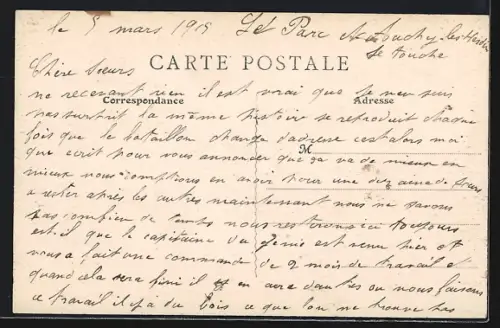 le 5 mars 1915 Le Parc
le touche
CARTE POSTALE
Chère Sœurs
ne recevant rien il est vrai que je ne suis
Correspondance Adresse
pas surprit la même histoire se reproduit chaque
fois que le bataillon change d'adresse c'est alors moi
M
qui écrit pour vous annoncer que ça va de mieux en
mieux nous comptions en avoir pour une dizaine de jours
a rester après les autres maintenant nous ne savons
pas combien de temps nous resterons ici toujours
est-il que le capitaine du Génie est venu hier et
nous a fait une commande de 2 mois de travail et
quand cela sera fini il y en aura d'autres ou nous faisons
ce travail il y a du bois ce que l'on ne trouve pas